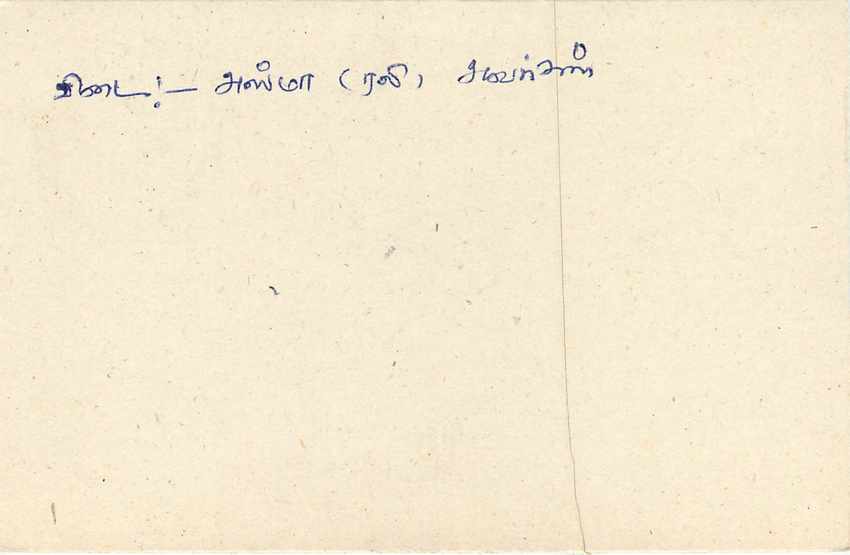 விடை:- அஸ்மா (ரலி) அவர்கள்